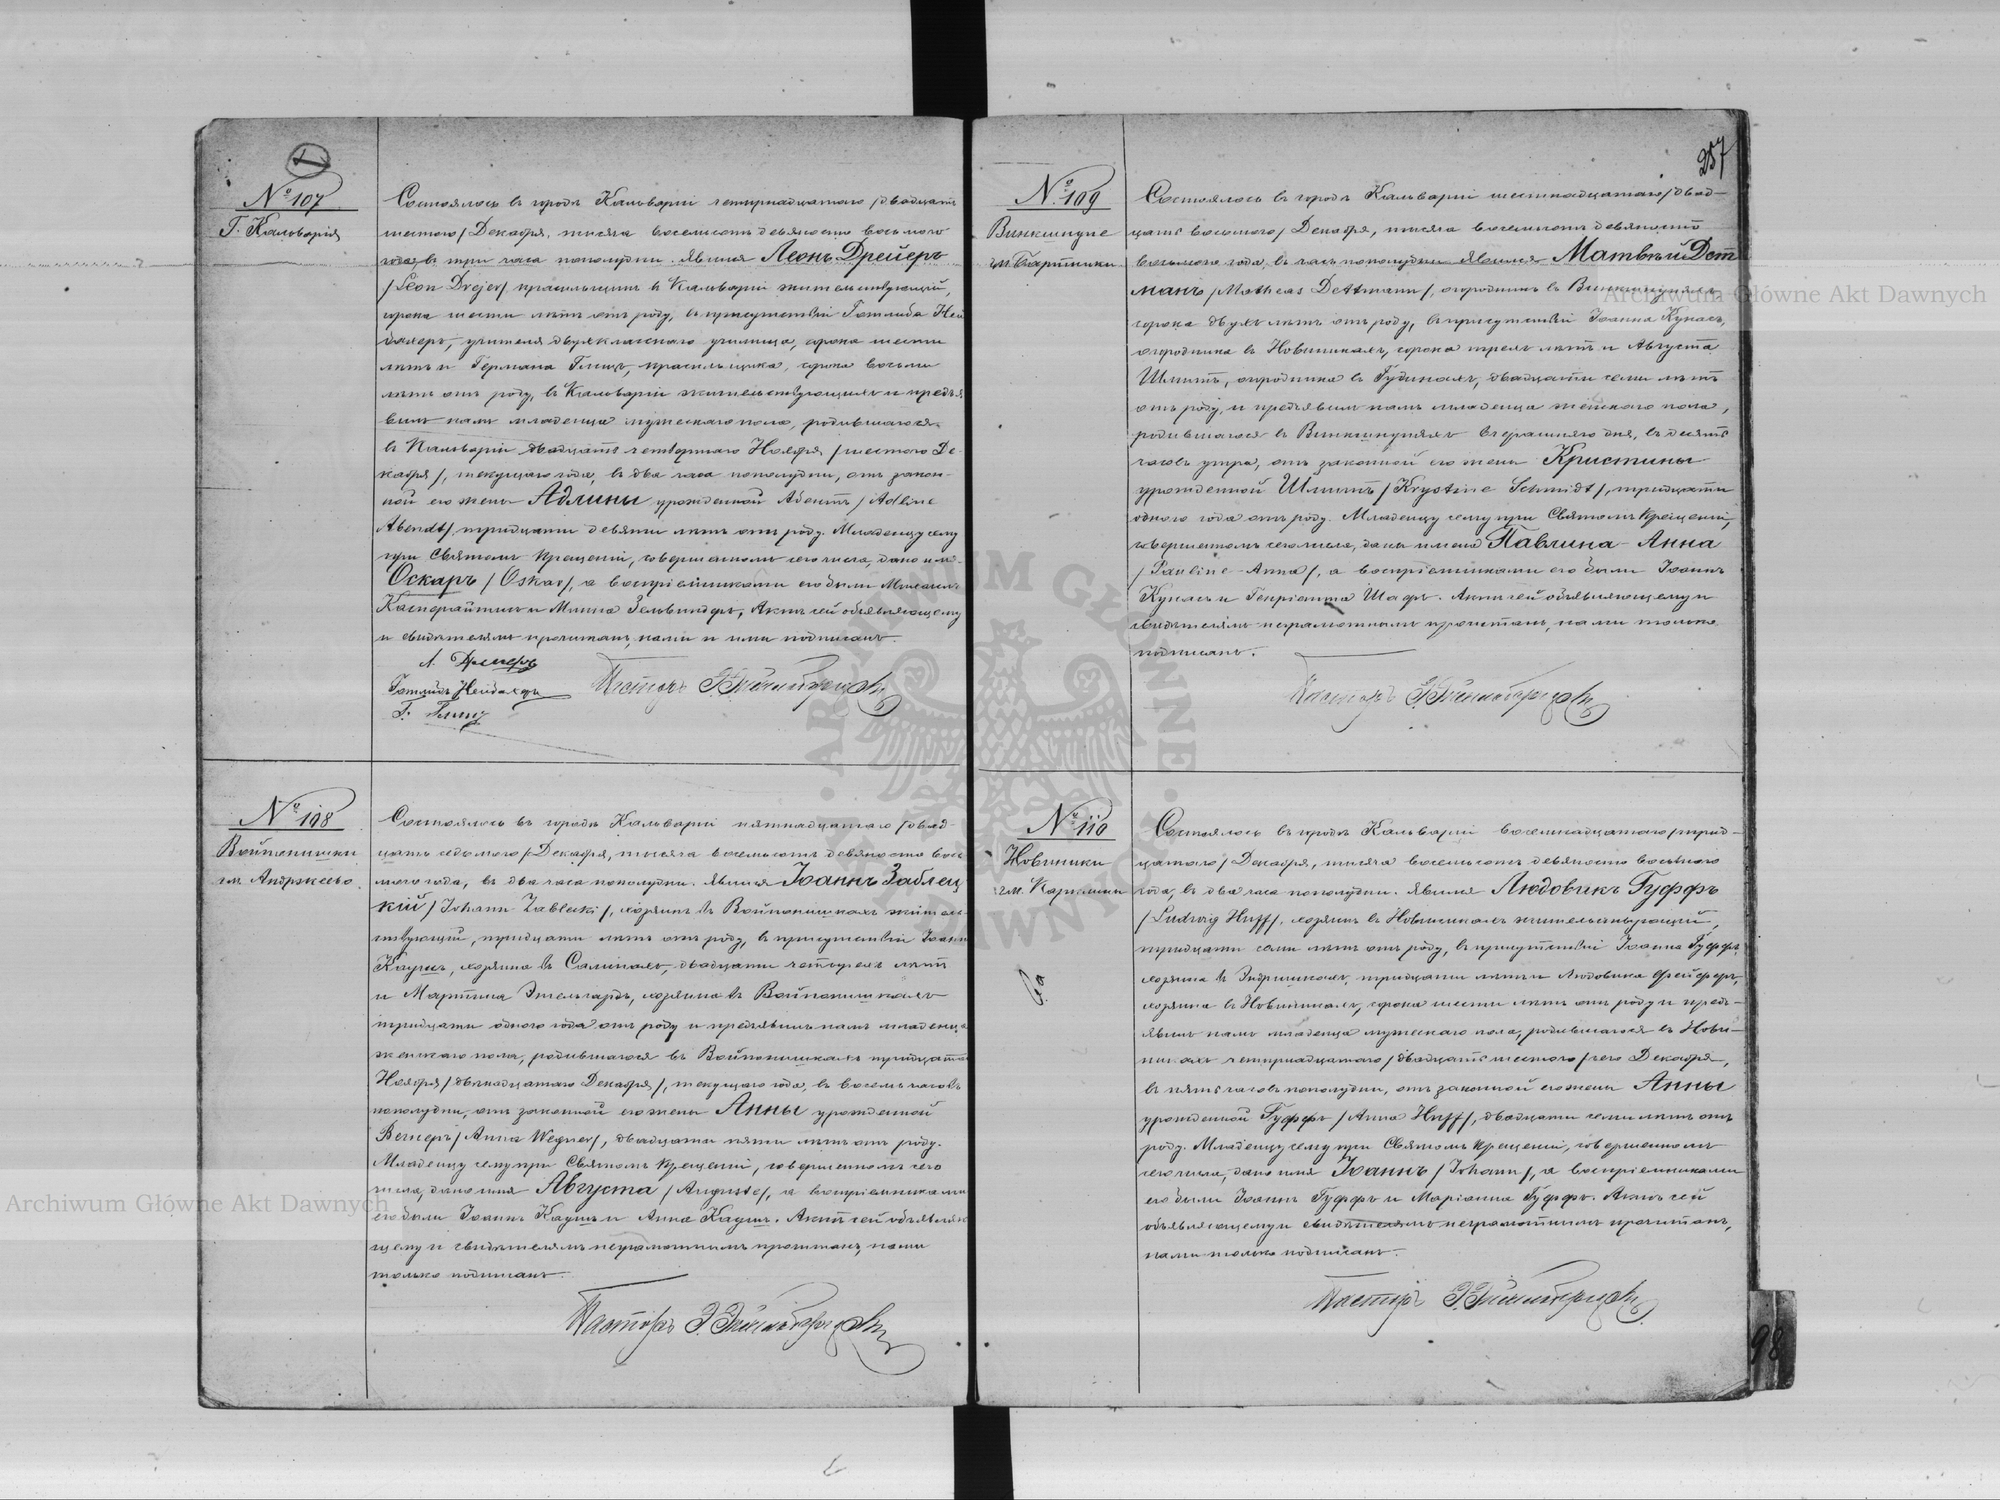 № 107
Г. Кальварія
Состоялось въ городѣ Кальваріи четырнадцатаго /двадцать
шестого/ Декабря, тысяча восемьсотъ девяносто восьмого
года, въ три часа пополудни. Явился Леонъ Дрейеръ
/Leon Drejer/ красильщикъ въ Кальваріи жительствующій,
сорока шести лѣтъ отъ роду, въ присутствіи Готлиба Ней
дахеръ, учителя двухкласснаго училища, сорока шести
лѣтъ и Германа Глицъ, красильщика, сорока восьми
лѣтъ отъ роду, въ Кальваріи жительствующихъ и предъя
вилъ намъ младенца мужескаго пола, родившагося
въ Кальваріи двадцать четвертаго Ноября /шестого Де-
кабря/, текущаго года, въ два часа пополудни, отъ закон-
ной его жены Адлины урожденной Абентъ /Adline
Abendt/ тридцати девяти лѣтъ отъ роду. Младенцу сему
при Святомъ Крещеніи, совершенномъ сего числа, дано имя
Оскаръ /Oskar/, а воспріемниками его были Михаилъ
и Минна Зельвиндеръ, Актъ сей объявляющему
и свидѣтелямъ прочитанъ, нами и ими подписанъ.
Л. Дрейеръ
Готлибъ Нейдахеръ Пасторъ
Г. Глицъ
№ 108
Войтопишки
гм. Андржеево
Состоялось въ городѣ Кальваріи пятнадцатаго /двад-
цать седьмого/ Декабря, тысяча восемьсотъ девяносто вось
мого года, въ два часа пополудни. Явился Іоаннъ Заблец
кій /Johann Zablecki/, хозяинъ въ Войтопишкахъ житель-
ствующій, тридцати лѣтъ отъ роду, въ присутствіи Іоанна
Каушъ, хозяина въ Салинахъ, двадцати четырехъ лѣтъ
и Мартина Энгельгардъ, хозяина въ Войтопишкахъ
тридцати одного года отъ роду и предъявилъ намъ младенца
женскаго пола, родившагося въ Войтопишкахъ тридцатаго
Ноября /двѣнадцатаго Декабря/, текущаго года, въ восемь часовъ
пополудни, отъ законной его жены Анны урожденной
Вегнеръ /Anna Wegner/, двадцати пяти лѣтъ отъ роду.
Младенцу сему при Святомъ Крещеніи, совершенномъ сего
числа, дано имя Августа /Auguste/, а воспріемниками
его были Іоаннъ Каушъ и Анна Каушъ. Актъ сей объявляю
щему и свидѣтелямъ неграмотнымъ прочитанъ, нами
только подписанъ.
Пасторъ
257
№ 109
Винкшнупе
гм. Бартники
Состоялось въ городѣ Кальваріи шестнадцатаго /двад-
цать восьмого/ Декабря, тысяча восемьсотъ девяносто
восьмого года, въ часъ пополудни. Явился Матвѣй Дет
манъ /Matheas Dettmann/, огородникъ въ Винкшнупяхъ
сорока двухъ лѣтъ отъ роду, въ присутствіи Іоанна Кунасъ,
огородника въ Новиникахъ, сорока трехъ лѣтъ и Августа
Шмитъ, огородника въ Гудинахъ, двадцати семи лѣтъ
отъ роду, и предъявилъ намъ младенца женскаго пола,
родившагося въ Винкшнупяхъ вчерашняго дня, въ десять
часовъ утра, отъ законной его жены Кристины
урожденной Шмитъ /Krystine Schmidt/, тридцати
одного года отъ роду. Младенцу сему при Святомъ Крещеніи,
совершенномъ сего числа, даны имена Павлина-Анна
/Pauline-Anna/, а воспріемниками его были Іоаннъ
Кунасъ и Генріетта Шадъ. Актъ сей объявляющему и
свидѣтелямъ неграмотнымъ прочитанъ, нами только
подписанъ.
Пасторъ
№ 110
Новиники
гм. Карклины
Состоялось въ городѣ Кальваріи восемнадцатаго /трид-
цатаго/ Декабря, тысяча восемьсотъ девяносто восьмого
года, въ два часа пополудни. Явился Людовикъ Гуффъ
/Ludwig Huff/, хозяинъ въ Новиникахъ жительствующій,
тридцати семи лѣтъ отъ роду, въ присутствіи Іоанна Гуффъ,
хозяина въ Эндришкахъ, тридцати лѣтъ и Людовика Фейферъ,
хозяина въ Новиникахъ, сорока шести лѣтъ отъ роду и предъ-
явилъ намъ младенца мужескаго пола, родившагося въ Нови-
никахъ четырнадцатаго /двадцать шестого/ сего Декабря,
въ пять часовъ пополудни, отъ законной его жены Анны
урожденной Гуффъ /Anna Huff/, двадцати семи лѣтъ отъ
роду. Младенцу сему при Святомъ Крещеніи, совершенномъ
сего числа, дано имя Іоаннъ /Johann/, а воспріемниками
его были Іоаннъ Гуффъ и Маріанна Гуффъ. Актъ сей
объявляющему и свидѣтелямъ неграмотнымъ прочитанъ,
нами только подписанъ.
Пасторъ
98
Archiwum Główne Akt Dawnych
Archiwum Główne Akt Dawnych
ARCHIWUM GŁÓWNE AKT DAWNYCH